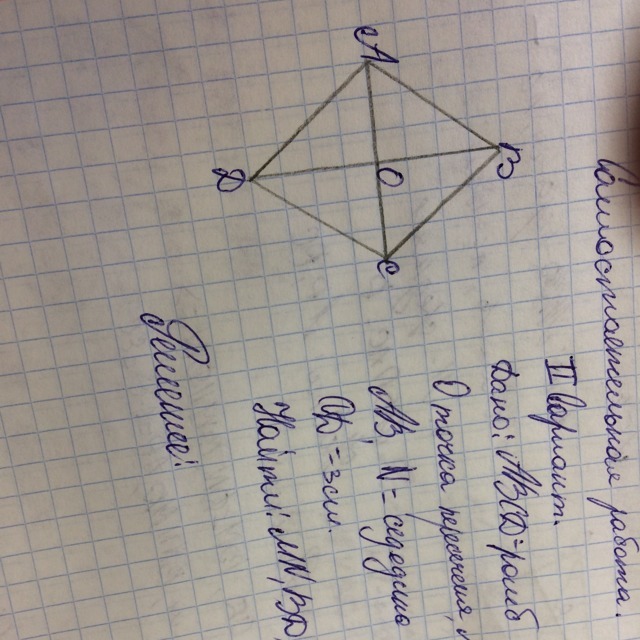 Самостоятельная работа.
II Вариант.
Дано: ABCD-ромб
O точка
N = середина
OB = 3см.
Найти: MN, BD
Решение:
A
B
O
D
C